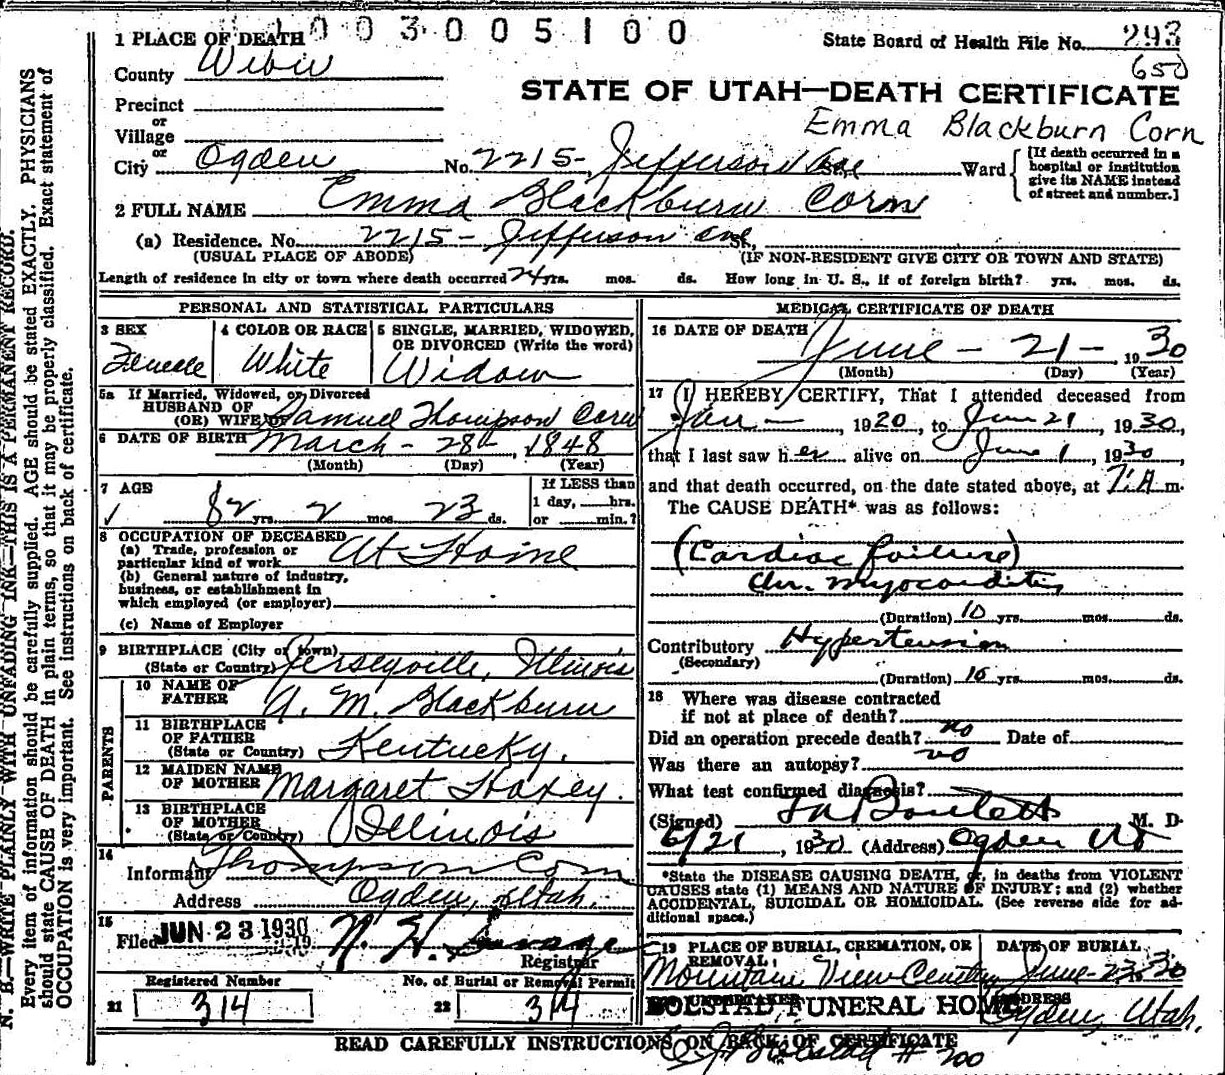 1 PLACE OF DEATH 0 0 3 0 0 5 1 0 0
State Board of Health File No. 293
650
County Weber
STATE OF UTAH—DEATH CERTIFICATE
Precinct
or
Village
Emma Blackburn Corn
or
City Ogden No. 2215- Jefferson Ave St. Ward
[If death occurred in a
hospital or institution
give its NAME instead
of street and number.]
2 FULL NAME Emma Blackburn Corn
(a) Residence. No. 2215- Jefferson Ave St.,
(USUAL PLACE OF ABODE) (IF NON-RESIDENT GIVE CITY OR TOWN AND STATE)
Length of residence in city or town where death occurred 24 yrs. mos. ds. How long in U. S., if of foreign birth? yrs. mos. ds.
PERSONAL AND STATISTICAL PARTICULARS
3 SEX 4 COLOR OR RACE 5 SINGLE, MARRIED, WIDOWED,
OR DIVORCED (Write the word)
Female White Widow
5a If Married, Widowed, or Divorced
HUSBAND OF
(OR) WIFE OF Samuel Thompson Corn
6 DATE OF BIRTH March - 28 - 1848
(Month) (Day) (Year)
7 AGE
82 yrs. 2 mos. 23 ds.
If LESS than
1 day, hrs.
or min.?
8 OCCUPATION OF DECEASED
(a) Trade, profession or
particular kind of work At Home
(b) General nature of industry,
business, or establishment in
which employed (or employer)
(c) Name of Employer
9 BIRTHPLACE (City or town)
(State or Country) Jerseyville, Illinois
PARENTS
10 NAME OF
FATHER A. M. Blackburn
11 BIRTHPLACE
OF FATHER
(State or Country) Kentucky.
12 MAIDEN NAME
OF MOTHER Margaret Haxey.
13 BIRTHPLACE
OF MOTHER
(State or Country) Illinois
14
Informant Thompson Corn
Address Ogden, Utah.
15
Filed JUN 23 1930 19 N. H. Savage
Registrar
Registered Number No. of Burial or Removal Permit
21 314 22 314
MEDICAL CERTIFICATE OF DEATH
16 DATE OF DEATH June - 21 - 1930
(Month) (Day) (Year)
17 I HEREBY CERTIFY, That I attended deceased from
Jan - 1920, to June 21, 1930,
that I last saw her alive on June 1, 1930
and that death occurred, on the date stated above, at 7:A m.
The CAUSE DEATH* was as follows:
(Cardiac failure)
Chr. Myocarditis
(Duration) 10 yrs. mos. ds.
Contributory Hypertension
(Secondary)
(Duration) 10 yrs. mos. ds.
18 Where was disease contracted
if not at place of death?
Did an operation precede death? no Date of
Was there an autopsy? no
What test confirmed diagnosis?
(Signed) M. D.
6/21, 1930 (Address) Ogden Ut
*State the DISEASE CAUSING DEATH, or, in deaths from VIOLENT
CAUSES state (1) MEANS AND NATURE OF INJURY; and (2) whether
ACCIDENTAL, SUICIDAL OR HOMICIDAL. (See reverse side for ad-
ditional space.)
19 PLACE OF BURIAL, CREMATION, OR
REMOVAL: DATE OF BURIAL
Mountain View Cemetery June-23-30
UNDERTAKER ADDRESS
BOLSTAD FUNERAL HOME Ogden, Utah.
READ CAREFULLY INSTRUCTIONS ON BACK OF CERTIFICATE
# 200
N. B.—WRITE PLAINLY WITH UNFADING INK—THIS IS A PERMANENT RECORD.
Every item of information should be carefully supplied. AGE should be stated EXACTLY. PHYSICIANS
should state CAUSE OF DEATH in plain terms, so that it may be properly classified. Exact statement of
OCCUPATION is very important. See instructions on back of certificate.